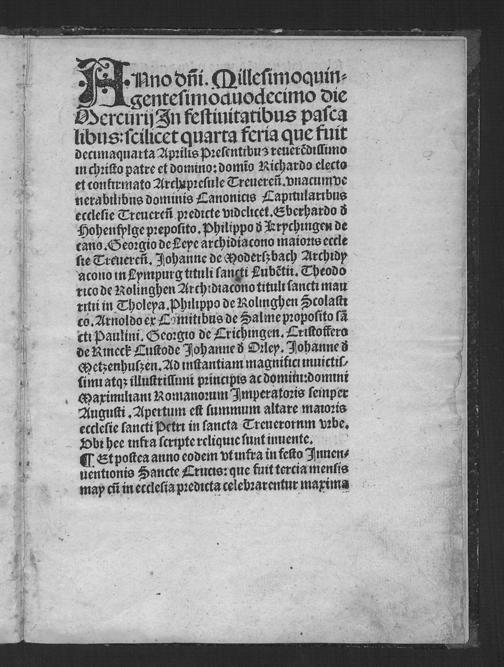 ANno dñi. Millesimoquin⸗
gentesimoduodecimo die
Mercurij In festiuitatibus pasca
libus: scilicet quarta feria que fuit
decimaquarta Aprilis Presentibuz reuerẽdissimo
in christo patre et domino: domĩo Richardo electo
et confirmato Archipresule Treuereñ. vnacumve
nerabilibus dominis Canonicis Capitularibus
ecclesie Treuereñ predicte videlicet. Eberhardo đ
Hohenfylge preposito. Philippo đ Krychingen de
cano. Georgio de Leye archidiacono maioris eccle
sie Treuereñ. Johanne de Moderszbach Archidy
acono in Lympurg tituli sancti Lubẽtii. Theodo
rico de Rolinghen Archidiacono tituli sancti mau
ritii in Tholeya. Philippo de Rolinghen Scolasti
co. Arnoldo ex Comitibus de Salme preposito sã
cti Paulini. Georgio de Crichingen. Cristoffero
de Rineck Custode Johanne đ Orley. Johanne đ
Metzenhuszen. Ad instantiam magnifici inuictis⸗
simi atqz illustrissimi principis ac domini: domini
Maximiliani Romanorum Imperatoris semper
Augusti. Apertum est summum altare maioris
ecclesie sancti Petri in sancta Treuerorum vrbe.
Vbi hec infra scripte reliquie sunt inuente.
¶ Et postea anno eodem vt infra in festo Inuen⸗
uentionis Sancte Crucis: que fuit tercia mensis
may cũ in ecclesia predicta celebrarentur maxima